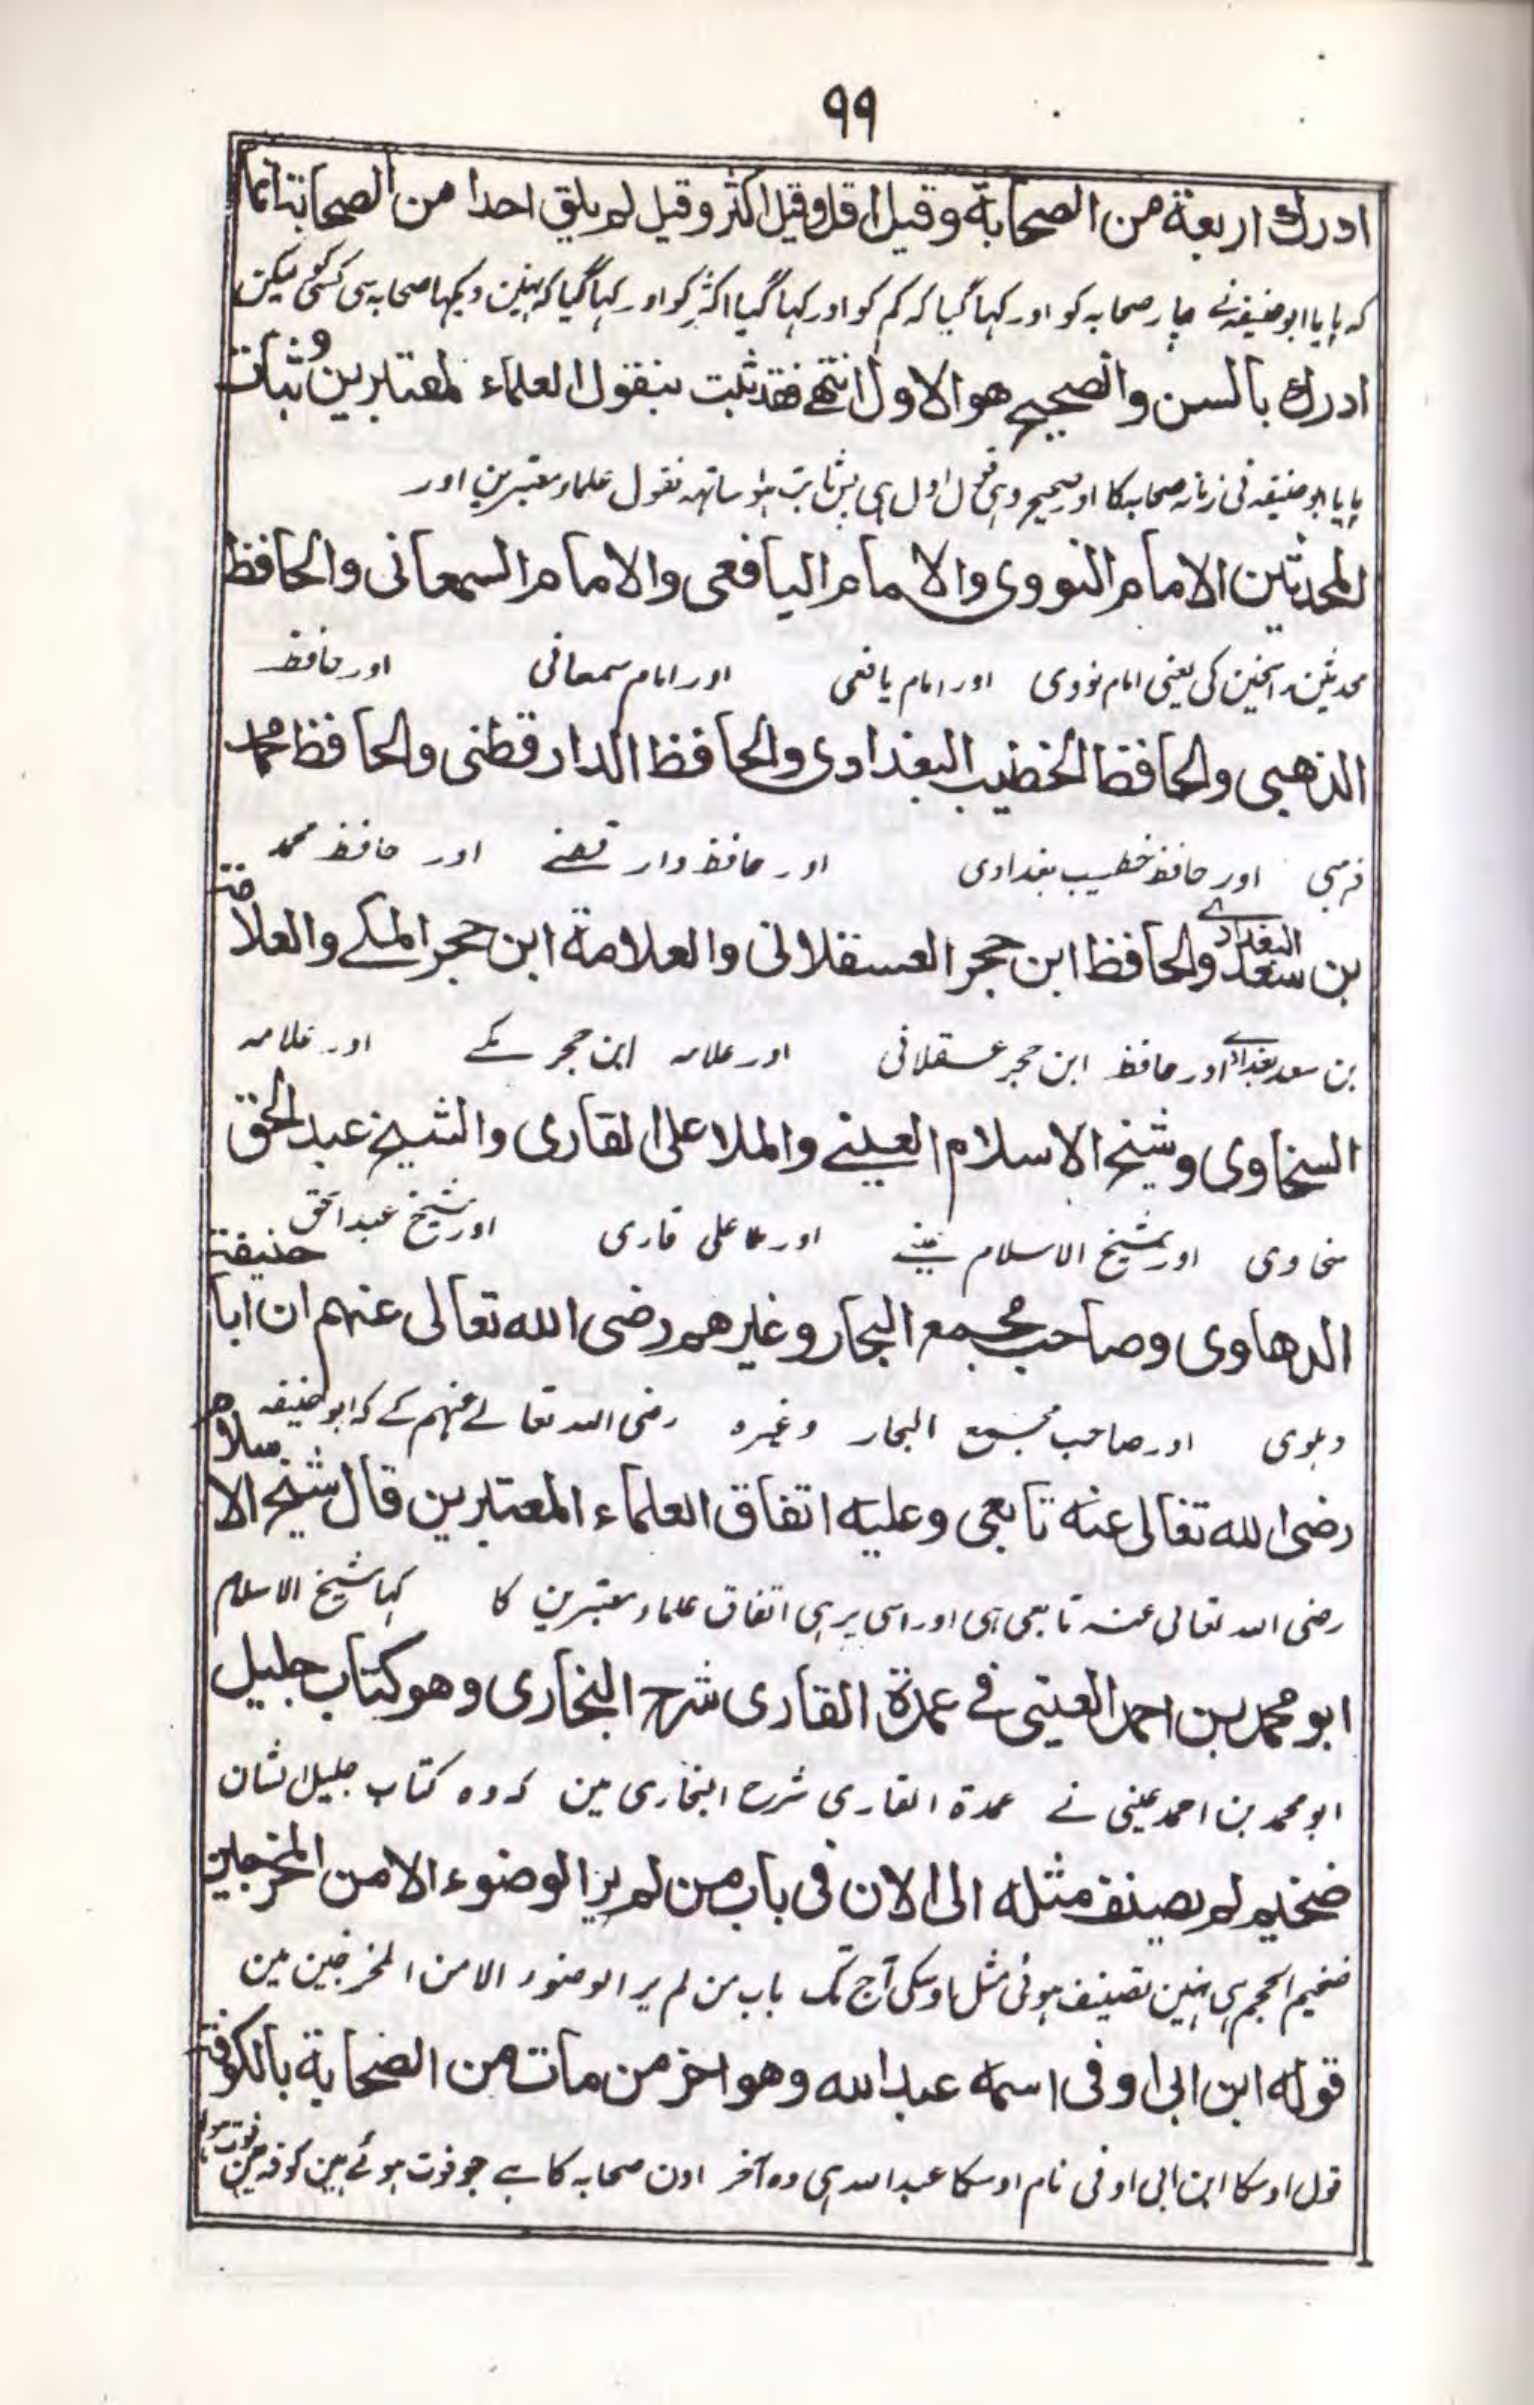 ۹۹
ادرك اربعة من الصحابة وقيل اقل وقيل اكثر وقيل لم يلق احدا من الصحابة انما
كہ پایا ابوحنیفہ نے چار صحابہ کو اور کہا گیا کہ کم کو اور کہا گیا اکثر کو اور کہا گیا کہ نہین دیکہا صحابہ سی کسی کو لیکن
ادرك بالسن والصحيح هو الاول انتهے فقد ثبت بنقول العلماء المعتبرين و ثبات
پایا ابوحنیفہ نی زمانہ صحابہ کا اور صحیح وہی قول اول ہی پس ثابت ہوا ساتہہ نقول علماء معتبرین اور
المحدثين الامام النووى والامام اليافعى والامام السمعانى والحافظ
محدثین راسخین کی یعنی امام نووی اور امام یافعی اور امام سمعانی اور حافظ
الذهبى والحافظ الخطيب البغدادى والحافظ الدارقطنى والحافظ محمد
ذہبی اور حافظ خطیب بغدادی اور حافظ دار قطنے اور حافظ محمد
بن سعد البغدادے والحافظ ابن حجر العسقلانى والعلامة ابن حجر المكے والعلامة
بن سعد بغدادے اور حافظ ابن حجر عسقلانی اور علامہ ابن حجر مکے اور علامہ
السخاوى وشيخ الاسلام العينے والملا على القارى والشيخ عبد الحق
سخاوی اور شیخ الاسلام عینے اور ملا علی قاری اور شیخ عبد الحق
الدهلوى وصاحب مجمع البحار وغيرهم رضى الله تعالى عنهم ان ابا حنيفة
دہلوی اور صاحب مجمع البحار وغیرہ رضی اللہ تعالے عنہم کے کہ ابو حنیفہ
رضى الله تعالى عنه تابعى وعليه اتفاق العلماء المعتبرين قال شيخ الاسلام
رضی اللہ تعالی عنہ تابعی ہی اور اسی پر ہی اتفاق علماء معتبرین کا کہا شیخ الاسلام
ابو محمد بن احمد العينى فے عمدة القارى شرح البخارى وهو كتاب جليل
ابو محمد بن احمد عینی نے عمدة القاری شرح البخاری مین کہ وہ کتاب جلیل الشان
ضخيم لم يصنف مثله الى الان فى باب من لم ير الوضوء الا من المخرجين
ضخیم الحجم ہی نہین تصنیف ہوئی مثل اوسکی آج تک باب من لم یر الوضوء الا من المخرجین مین
قوله ابن ابى اوفى اسمه عبد الله وهو اخر من مات من الصحابة بالكوفة
قول اوسکا ابن ابی اوفی نام اوسکا عبد اللہ ہی وہ آخر اون صحابہ کا ہے جو فوت ہوئے ہین کوفہ مین فوت